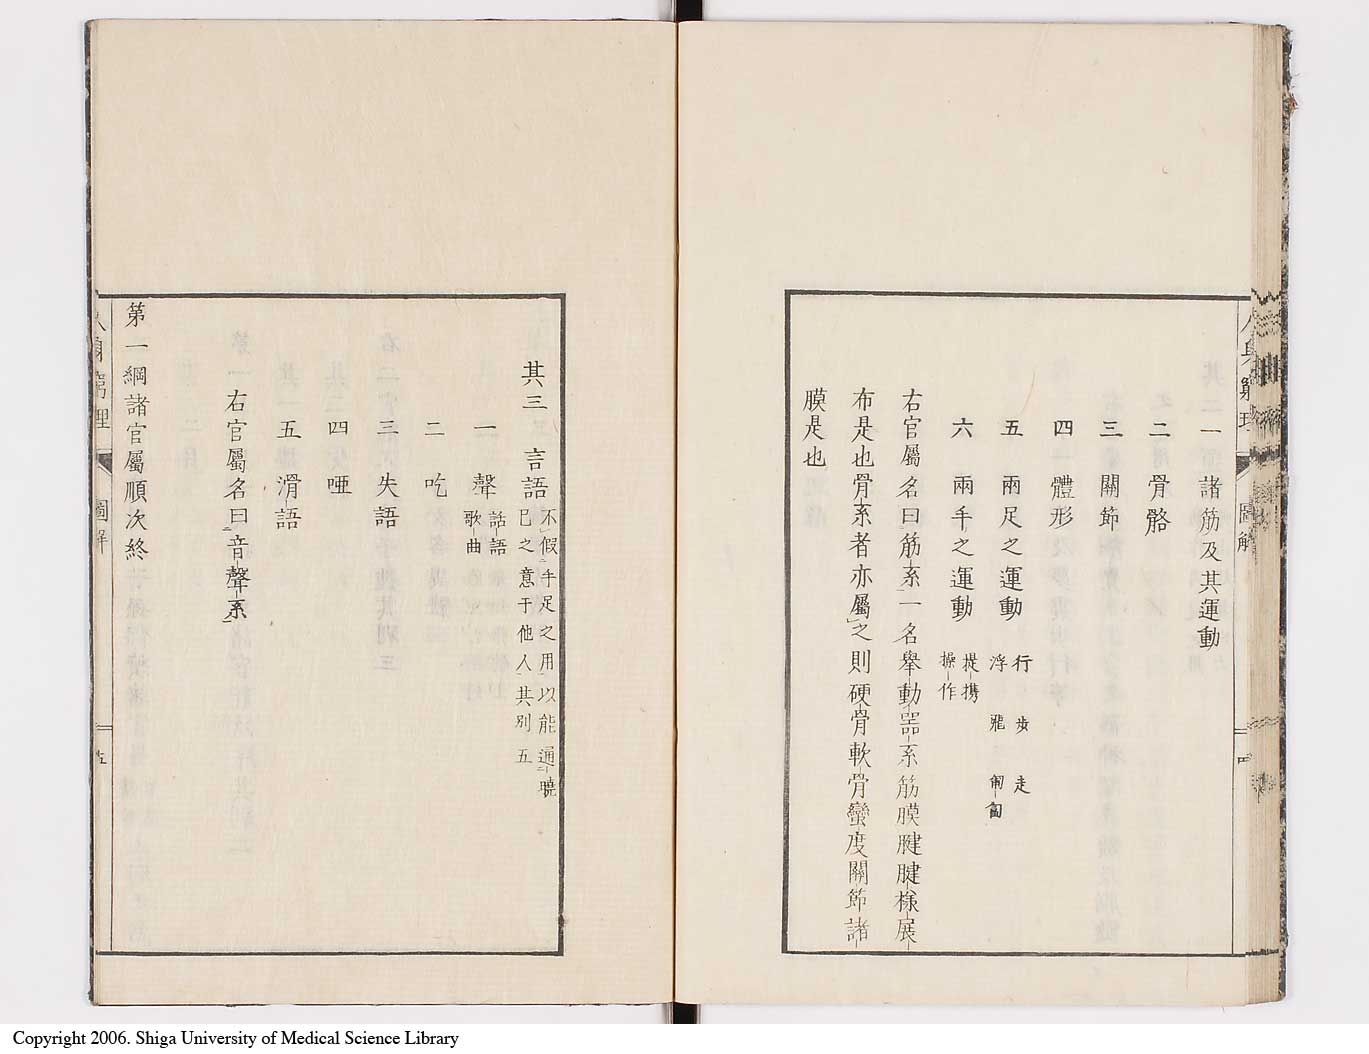 一 諸筋及其運動
二 骨骼
三 關節
四 體形
五 兩足之運動 行歩走
浮 飛
六 兩手之運動 提携
操作
右官屬名曰筋系一名擧動器系筋膜腱腱樣展
布是也骨系者亦屬之則硬骨軟骨蠻度關節諸
膜是也
人身窮理 圖解
其三 言語 不假手足之用以能通曉
已之意于他人其別五
一 聲 話語
歌曲
二 吃
三 失語
四 啞
五 滑語
右官屬名曰音聲系
第一綱諸官屬順次終
人身窮理 圖解 十五
Copyright 2006. Shiga University of Medical Science Library